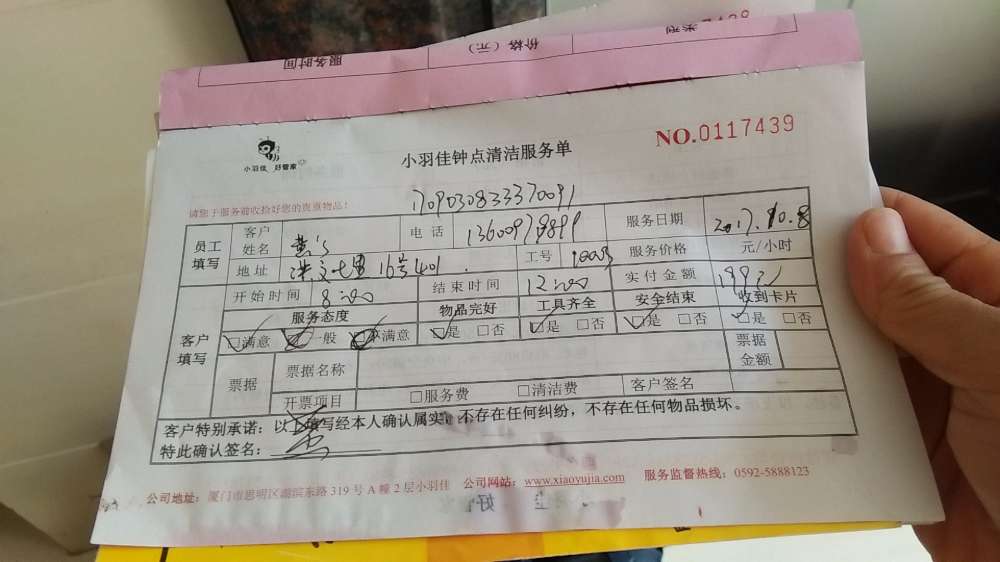 服务时间 价格（元） 类别
NO.0117439
小羽佳 好管家
小羽佳钟点清洁服务单
请您于服务前收拾好您的贵重物品！
1709030833370091
员工填写 客户姓名 黄 电话 服务日期 2017.10.8
地址 洪文七里16号401 工号 服务价格 元/小时
客户填写 开始时间 8:00 结束时间 12:00 实付金额
服务态度 物品完好 工具齐全 安全结束 收到卡片
满意 一般 不满意 是 否 是 否 是 否 是 否
票据 票据名称 票据金额
开票项目 服务费 清洁费 客户签名
客户特别承诺：以上填写经本人确认属实，不存在任何纠纷，不存在任何物品损坏。
特此确认签名：
公司地址：厦门市思明区湖滨东路319号A幢2层小羽佳 公司网站：www.xiaoyujia.com 服务监督热线：0592-5888123